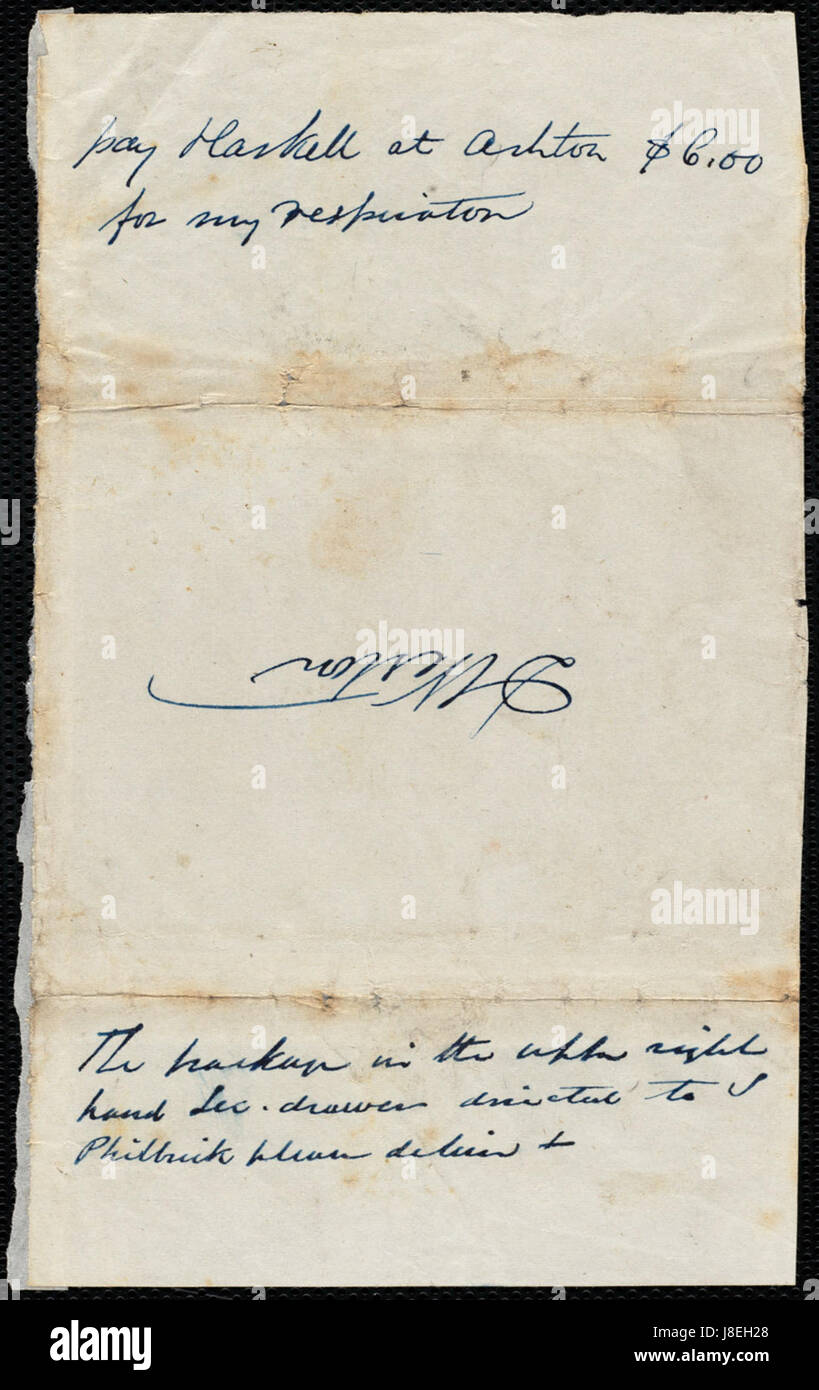 pay Haskell at Ashton $6.00
for my respirator
D Weston
The package in the upper right
hand Sec. drawer directed to S
Philbrick please deliver +
alamy
Image ID: J8EH28
www.alamy.com